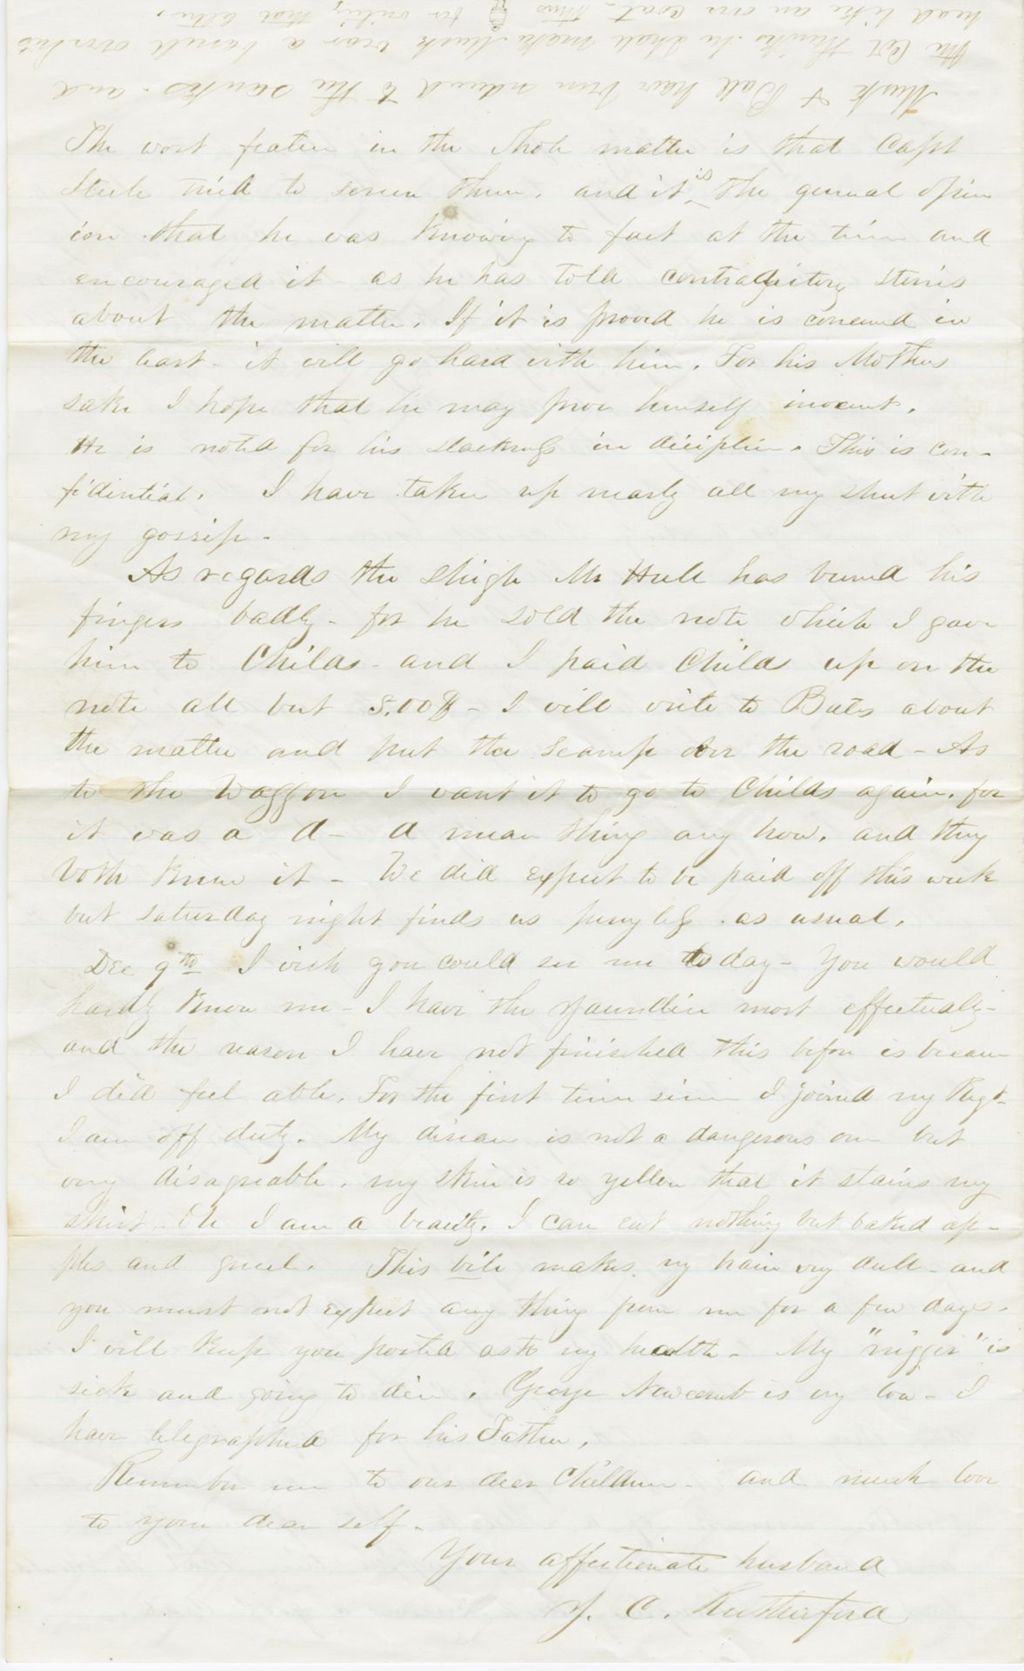 Musk & Ball have been reduced to the ranks - and
the Col thinks he shall make Musk wear a barrell over his
head like an over coat, thus for writing that letter.
The worst feature in the whole matter is that Capt
Steele tried to screen them. and it is the general opin
ion that he was knowing to fact at the time and
encouraged it - as he has told contradictory stories
about the matter. If it is proved he is concerned in
the least - it will go hard with him. For his Mothers
sake I hope that he may prove himself inocent.
He is noted for his slackness in diciplin. This is con-
fidential. I have taken up nearly all my sheet with
my gossip -
As regards the sleigh Mr Hull has burned his
fingers badly - for he sold the note which I gave
him to Childs - and I paid Childs up on the
note all but 8.00$ - I will write to Bates about
the matter and put the scamp over the road - As
to the Waggon I want it to go to Childs again. for
it was a d - d mean thing any how. and they
both knew it - We did expect to be paid off this week
but saturday night finds us penyless . as usual.
Dec 9th I wish you could see me to day - You would
hardly know me - I have the Yaundice most effectualy -
and the reason I have not finished this before is because
I did feel able. For the first time since I joined my Regt -
I am off duty. My disease is not a dangerous one but
very disagreable. my skin is so yellow that it stains my
shirt - Oh I am a beauty. I can eat nothing but baked ap-
ples and gruel. This bile makes my brain very dull - and
you must not expect any thing from me for a few days -
I will keep you posted as to my health - My "nigger" is
sick and going to die. George Newcomb is very low - I
have telegraphed for his Father.
Remember me to our dear Children - and much love
to your dear self -
Your affectionate husband
J. C. Rutherford